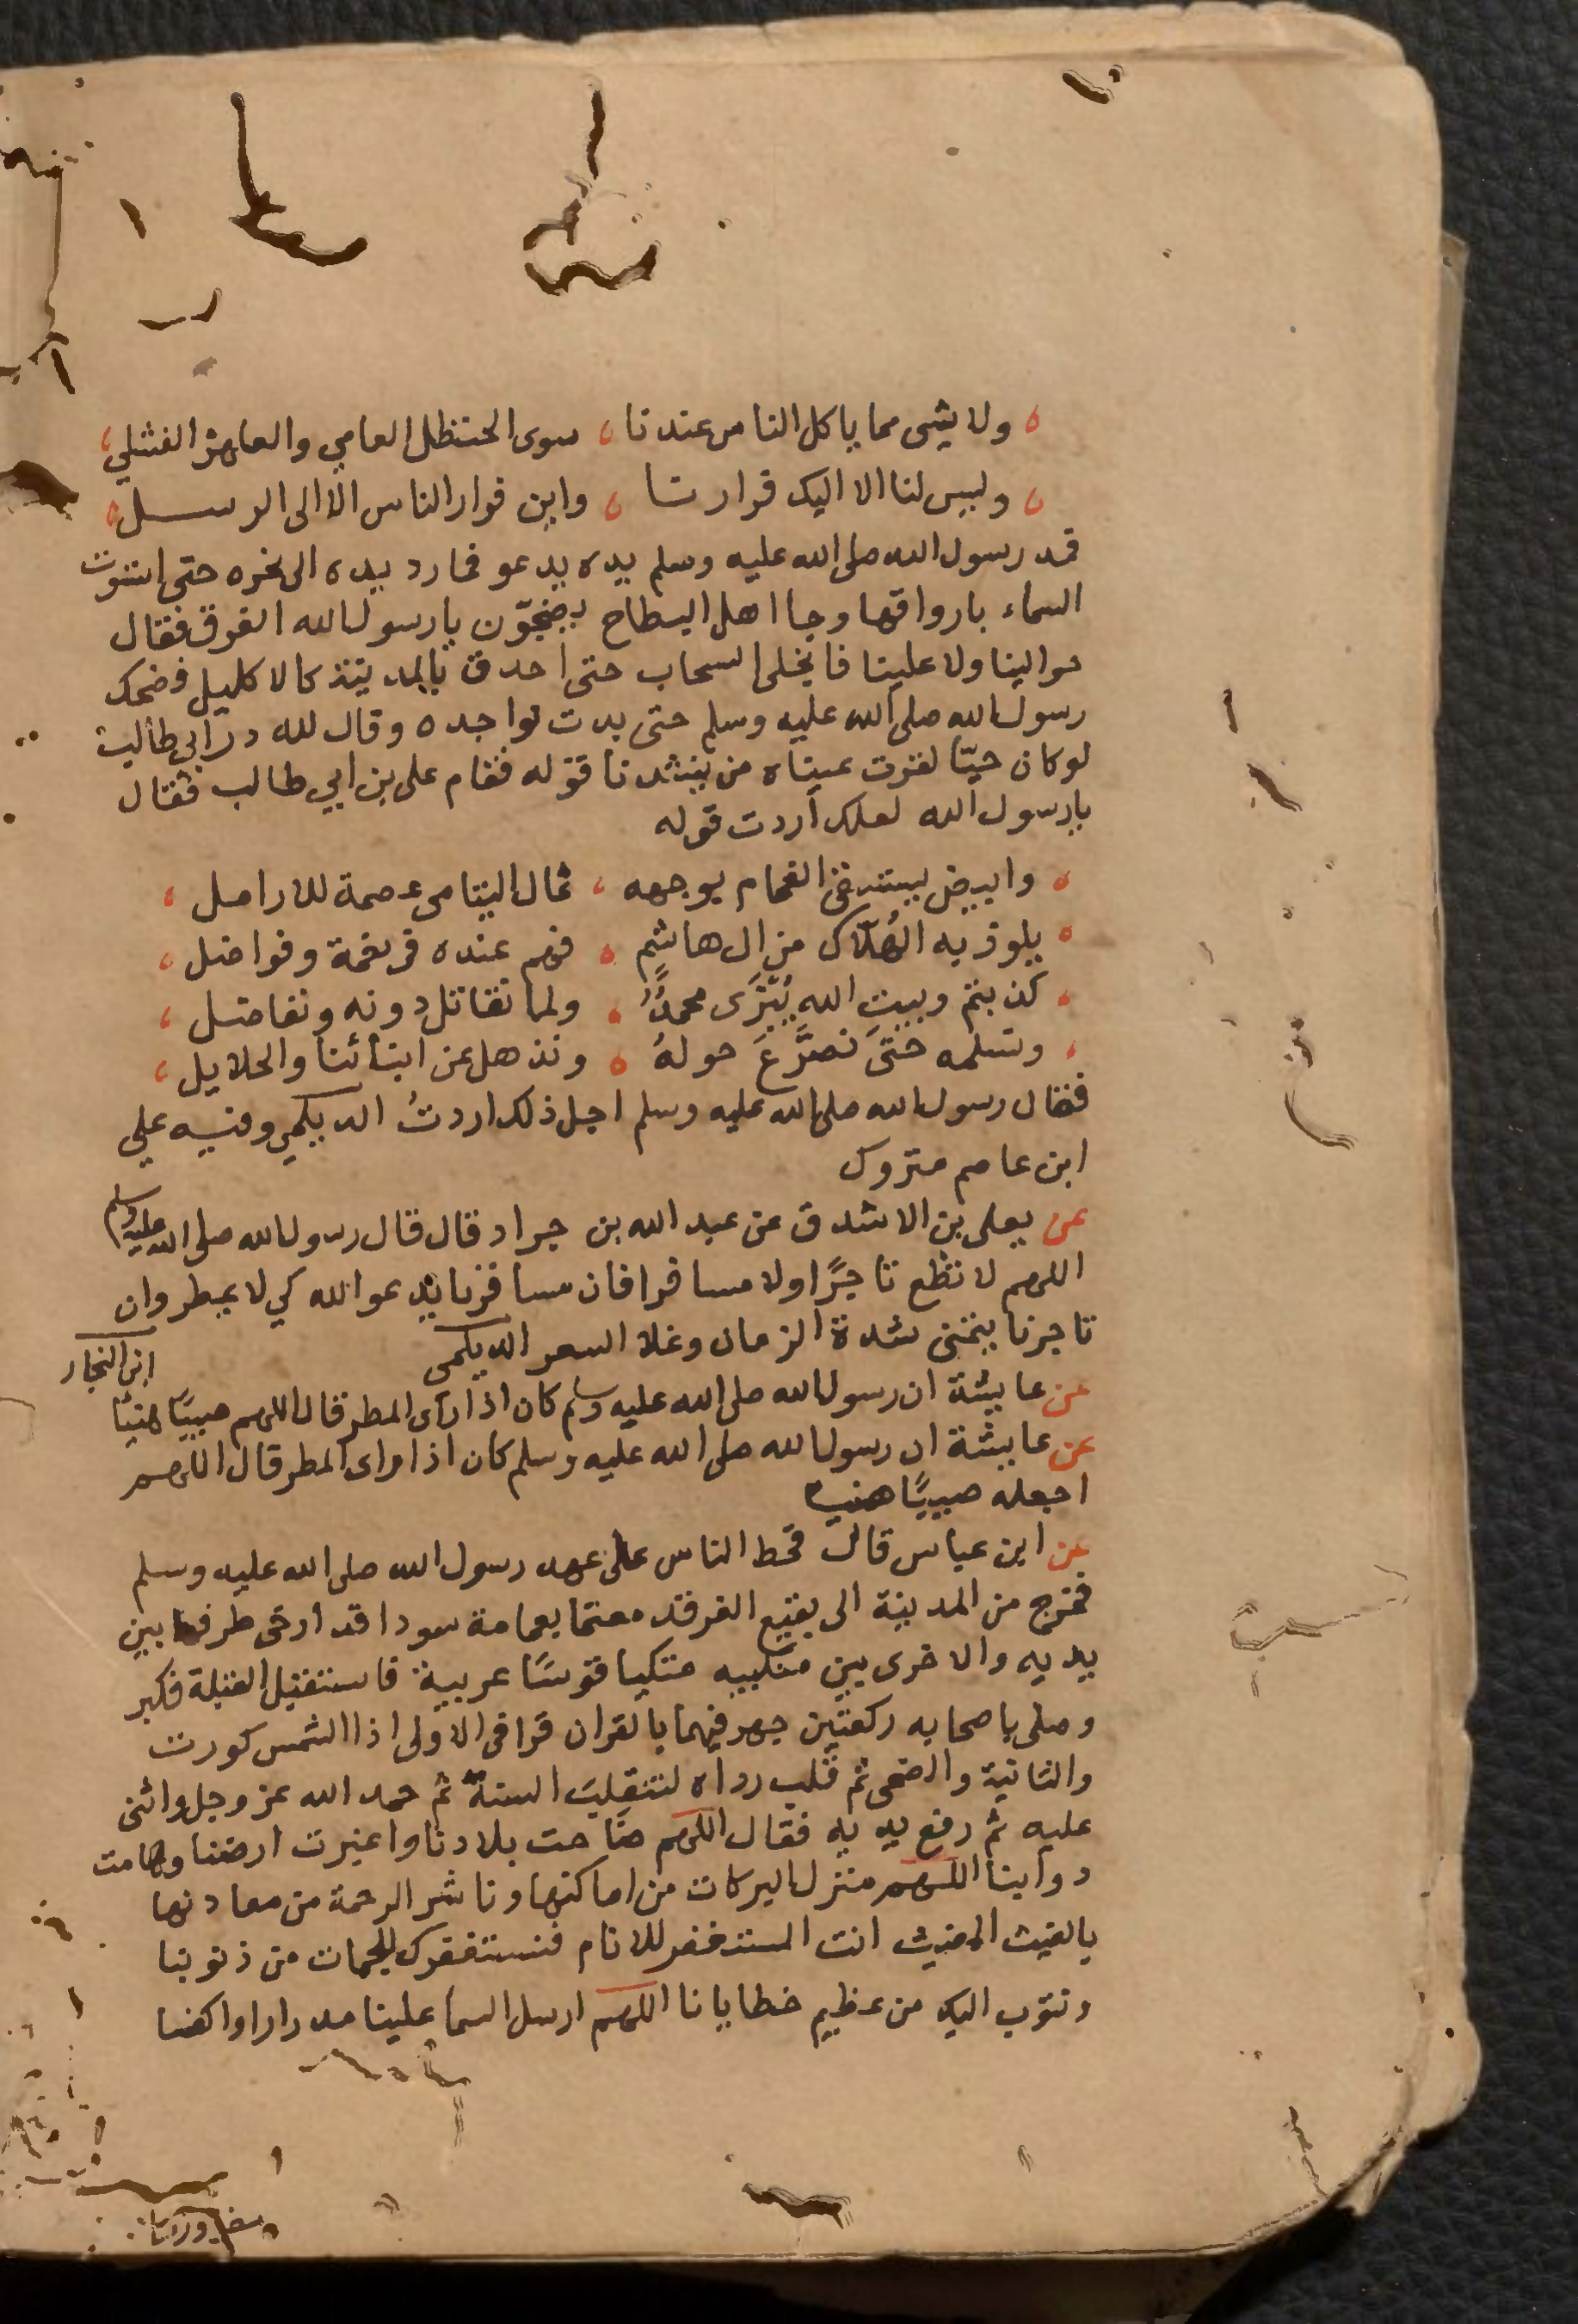 ولا شى مما ياكل الناس عندنا ، سوى الحنظل العامي والعلهز الفشلي ،
وليس لنا الا اليك فرارنا ، واين فرار الناس الا الى الرسل
فمد رسول الله صلى الله عليه وسلم يده يدعو فما رد يده الى نحره حتى استوت
السماء بارواقها وجا اهل البطاح يضجّون يارسول الله الغرق فقال
حوالينا ولا علينا فانجلى السحاب حتى احدق بالمدينة كالاكليل فضحك
رسول الله صلى الله عليه وسلم حتى بدت نواجده وقال لله در ابي طالب
لوكان حيّا لقرت عيناه من ينشدنا قوله فقام على بن ابي طالب فقال
يارسول الله لعلك أردت قوله
وابيض يستسقى الغمام بوجهه ، ثمال اليتامى عصمة للارامل ،
يلوذ به الهُلّاك من ال هاشم ، فهم عنده فى نعمة وفواضل ،
كذبتم وبيت الله يُبْزَى محمدٌ ، ولما نقاتل دونه ونفاضل ،
ونسلمه حتى نصرَّعَ حولهُ ، ونذهل عن ابنائنا والحلايل ،
فقال رسول الله صلى الله عليه وسلم اجل ذلك اردتُ الديكمي وفيه علي
ابن عاصم متروك
عن يعلى بن الاشدق عن عبد الله بن جراد قال قال رسول الله صلى الله عليه وسلم
اللهم لا تطع تاجرًا ولا مسافرا فان مسافرنا يدعو الله كي لا يمطر وان
تاجرنا يتمنى شدة الزمان وغلا السعر الديكمى
ابن النجار
عن عايشة ان رسول الله صلى الله عليه وسلم كان اذا راى المطر قال اللهم صيبًا هنيًا
عن عايشة ان رسول الله صلى الله عليه وسلم كان اذا راى المطر قال اللهم
اجعله صيبًا هنيا
عن ابن عباس قال قحط الناس على عهد رسول الله صلى الله عليه وسلم
فخرج من المدينة الى بقيع الغرقد معتما بعمامة سودا قد أرخى طرفها بين
يديه والاخرى بين منكبيه متكيا قوسًا عربية فاستقبل القبلة فكبر
وصلى باصحابه ركعتين جهر فيهما بالقران قرا فى الاولى اذا الشمس كورت
والثانية والضحى ثم قلب رداه لتنقلب السنة ثم حمد الله عز وجل واثنى
عليه ثم رفع يديه فقال اللهم ضاحت بلادنا واغبرت ارضنا وهامت
دوابنا اللهم منزل البركات من اماكنها وناشر الرحمة من معادنها
بالغيث المغيث انت المستغفر للانام فنستغفرك للجمات من ذنوبنا
ونتوب اليك من عظيم خطايانا اللهم ارسل السما علينا مدرارا واكفنا